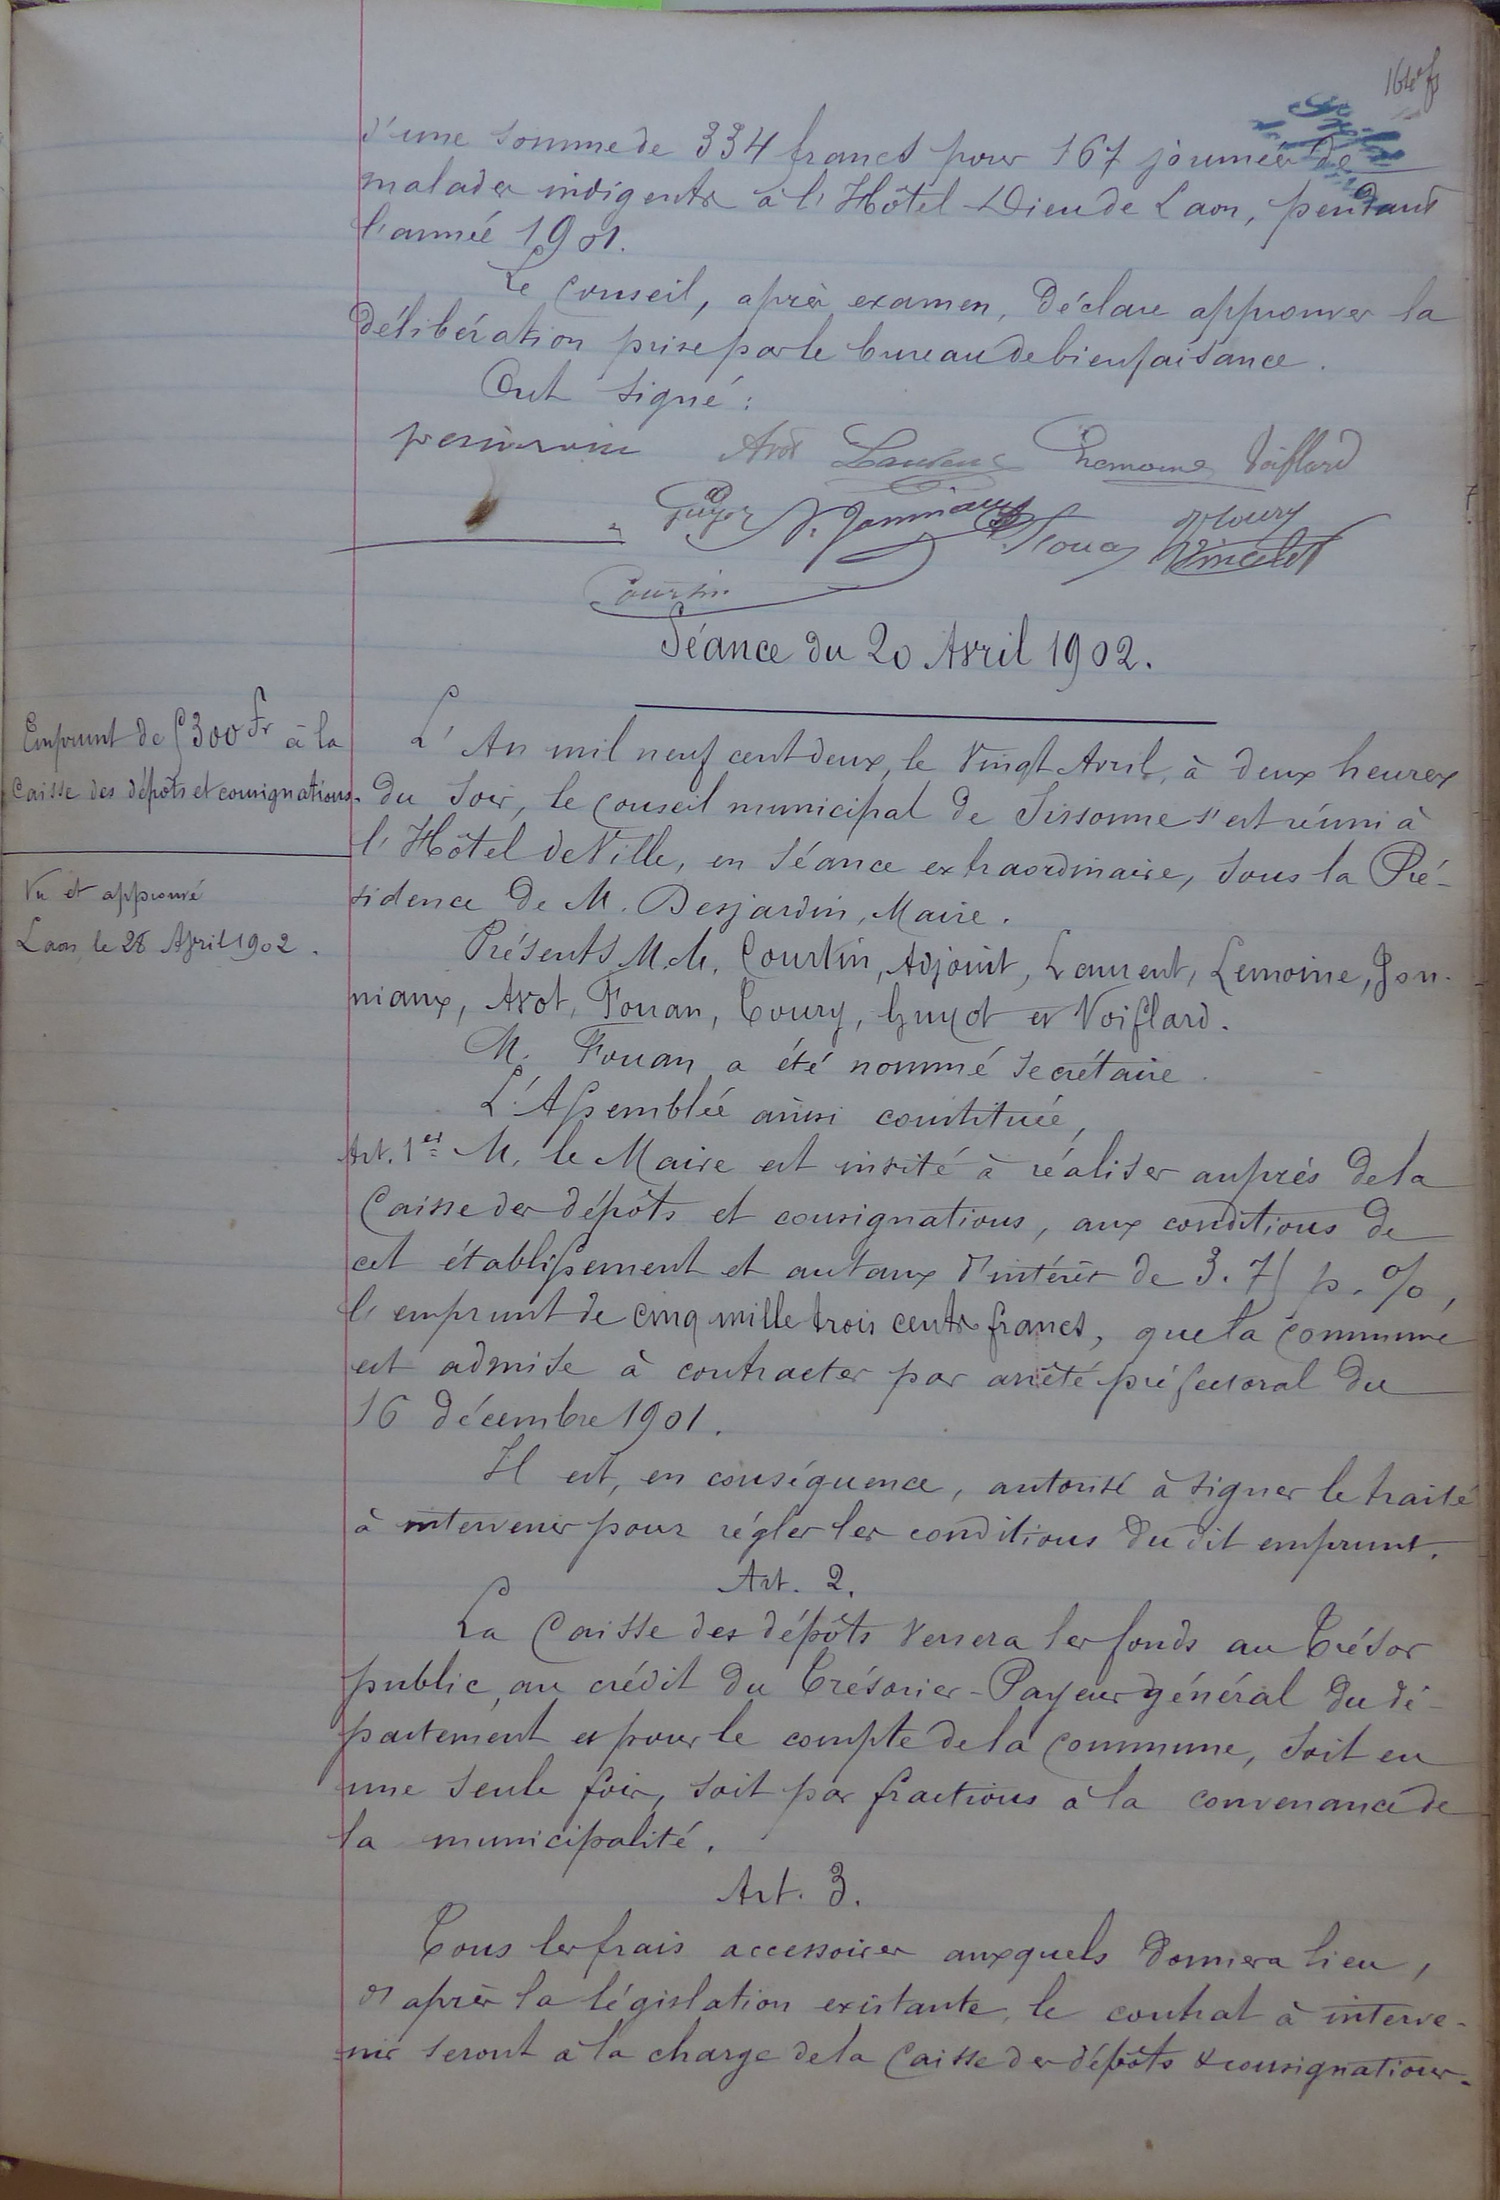 d'une somme de 334 francs pour 167 journées de
malades indigents à l'Hôtel-Dieu de Laon, pendant
l'année 1901.
Le Conseil, après examen, déclare approuver la
délibération prise par le bureau de bienfaisance.
Ont signé :
Avot Laurent Lemoine Voiflard
Guyot Jonniaux Fouan Toury
Vincelet
Courtin
Séance du 20 Avril 1902.
Emprunt de 5300 Fr à la
Caisse des dépôts et consignations.
Vu et approuvé
Laon, le 28 Avril 1902.
L'An mil neuf cent deux, le Vingt Avril, à deux heures
du soir, le Conseil municipal de Sissonne s'est réuni à
l'Hôtel de Ville, en séance extraordinaire, sous la Pré-
sidence de M. Desjardin, Maire.
Présents M.M. Courtin, Adjoint, Laurent, Lemoine, Jon-
niaux, Avot, Fouan, Toury, Guyot et Voiflard.
M. Fouan a été nommé Secrétaire.
L'Assemblée ainsi constituée,
Art. 1er M. le Maire est invité à réaliser auprès de la
Caisse des dépôts et consignations, aux conditions de
cet établissement et au taux d'intérêt de 3.75 p. %,
l'emprunt de cinq mille trois cents francs, que la commune
est admise à contracter par arrêté préfectoral du
16 décembre 1901.
Il est, en conséquence, autorisé à signer le traité
à intervenir pour régler les conditions du dit emprunt.
Art. 2.
La Caisse des dépôts versera les fonds au Trésor
public, au crédit du Trésorier-Payeur général du dé-
partement et pour le compte de la Commune, soit en
une seule fois, soit par fractions à la convenance de
la municipalité.
Art. 3.
Tous les frais accessoires auxquels donnera lieu,
d'après la législation existante, le contrat à interve-
nir seront à la charge de la Caisse des dépôts & consignations.